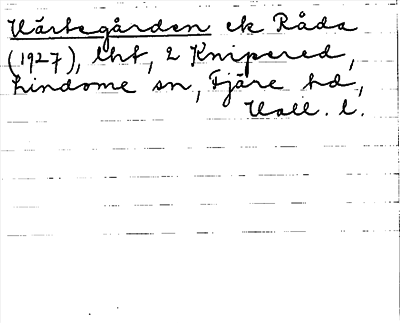 Wärtsgården ek Råda
(1927), lht, 2 Knipered,
Lindome sn, Fjäre hd,
Hall. l.